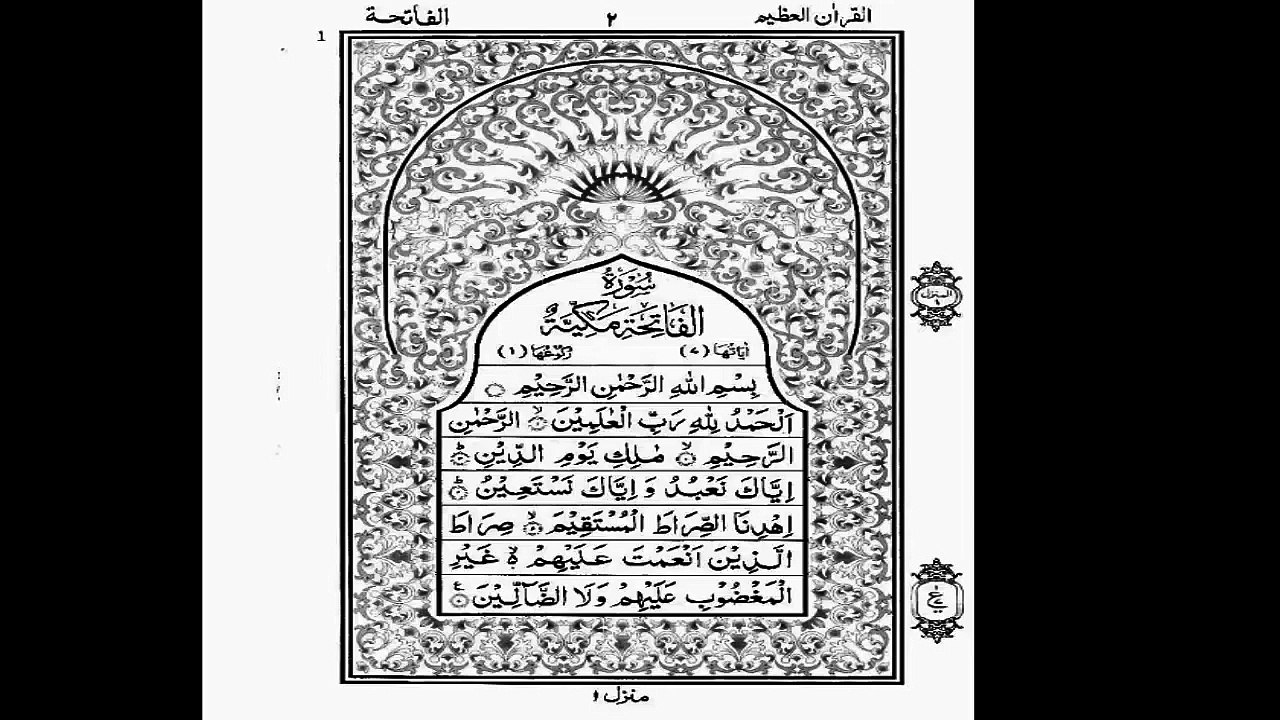 القرآن العظيم ٢ الفاتحة
1
سُوْرَةُ
الْفَاتِحَةِ مَكِّيَّةٌ
اٰيَاتُهَا (٧) رُكُوْعُهَا (١)
بِسْمِ اللّٰهِ الرَّحْمٰنِ الرَّحِيْمِ
اَلْحَمْدُ لِلّٰهِ رَبِّ الْعٰلَمِيْنَ ۙ الرَّحْمٰنِ
الرَّحِيْمِ ۙ مٰلِكِ يَوْمِ الدِّيْنِ ؕ
اِيَّاكَ نَعْبُدُ وَ اِيَّاكَ نَسْتَعِيْنُ ؕ
اِهْدِنَا الصِّرَاطَ الْمُسْتَقِيْمَ ۙ صِرَاطَ
الَّذِيْنَ اَنْعَمْتَ عَلَيْهِمْ ۙ۬ غَيْرِ
الْمَغْضُوْبِ عَلَيْهِمْ وَلَا الضَّآلِّيْنَ
المنزل ١
منزل ١